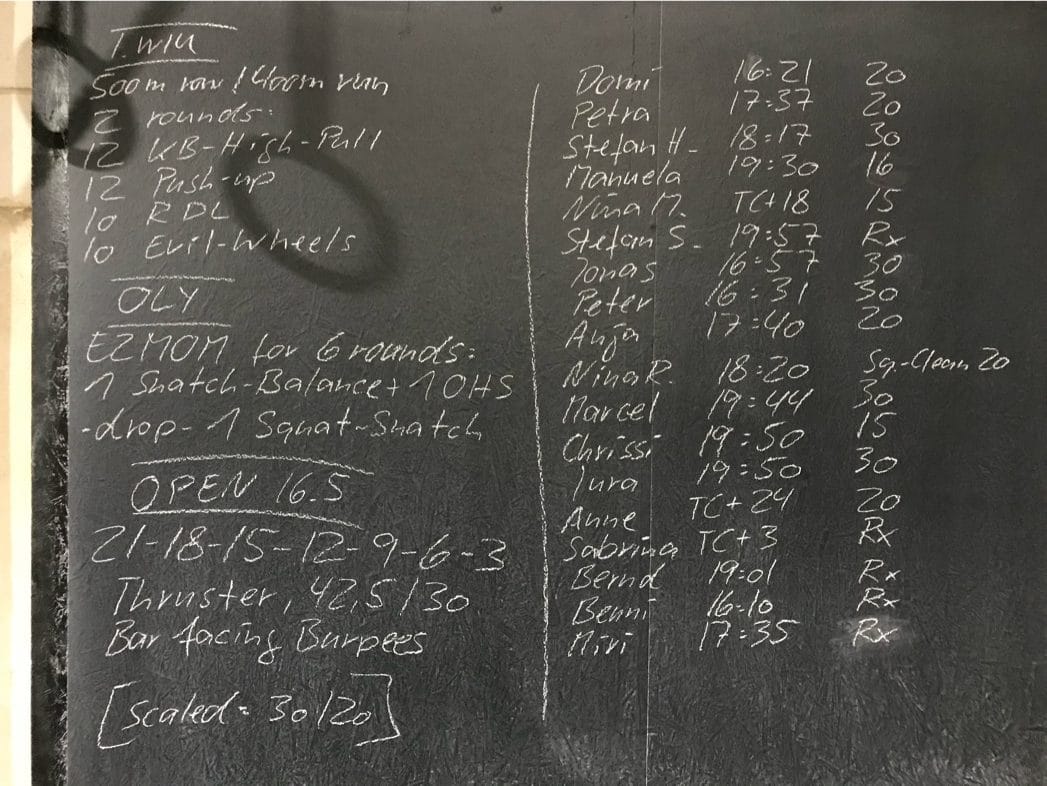 T. WIU
500m row / 400m run
2 rounds:
12 KB-High-Pull
12 Push-up
10 RDL
10 Evil-Wheels
OLY
E2MOM for 6 rounds:
1 Snatch-Balance + 1 OHS
-drop- 1 Squat-Snatch
OPEN 16.5
21-18-15-12-9-6-3
Thruster, 42,5/30
Bar facing Burpees
[scaled = 30/20]
Domi 16:21 20
Petra 17:37 20
Stefan H. 18:17 30
Manuela 19:30 16
Nina M. TC+18 15
Stefan S. 19:57 Rx
Jonas 16:57 30
Peter 16:31 30
Anja 17:40 20
Nina R. 18:20 Sq.-Clean 20
Marcel 19:44 30
Chrissi 19:50 15
Jura 19:50 30
Anne TC+24 20
Sabrina TC+3 Rx
Bernd 19:01 Rx
Benni 16:10 Rx
Miri 17:35 Rx